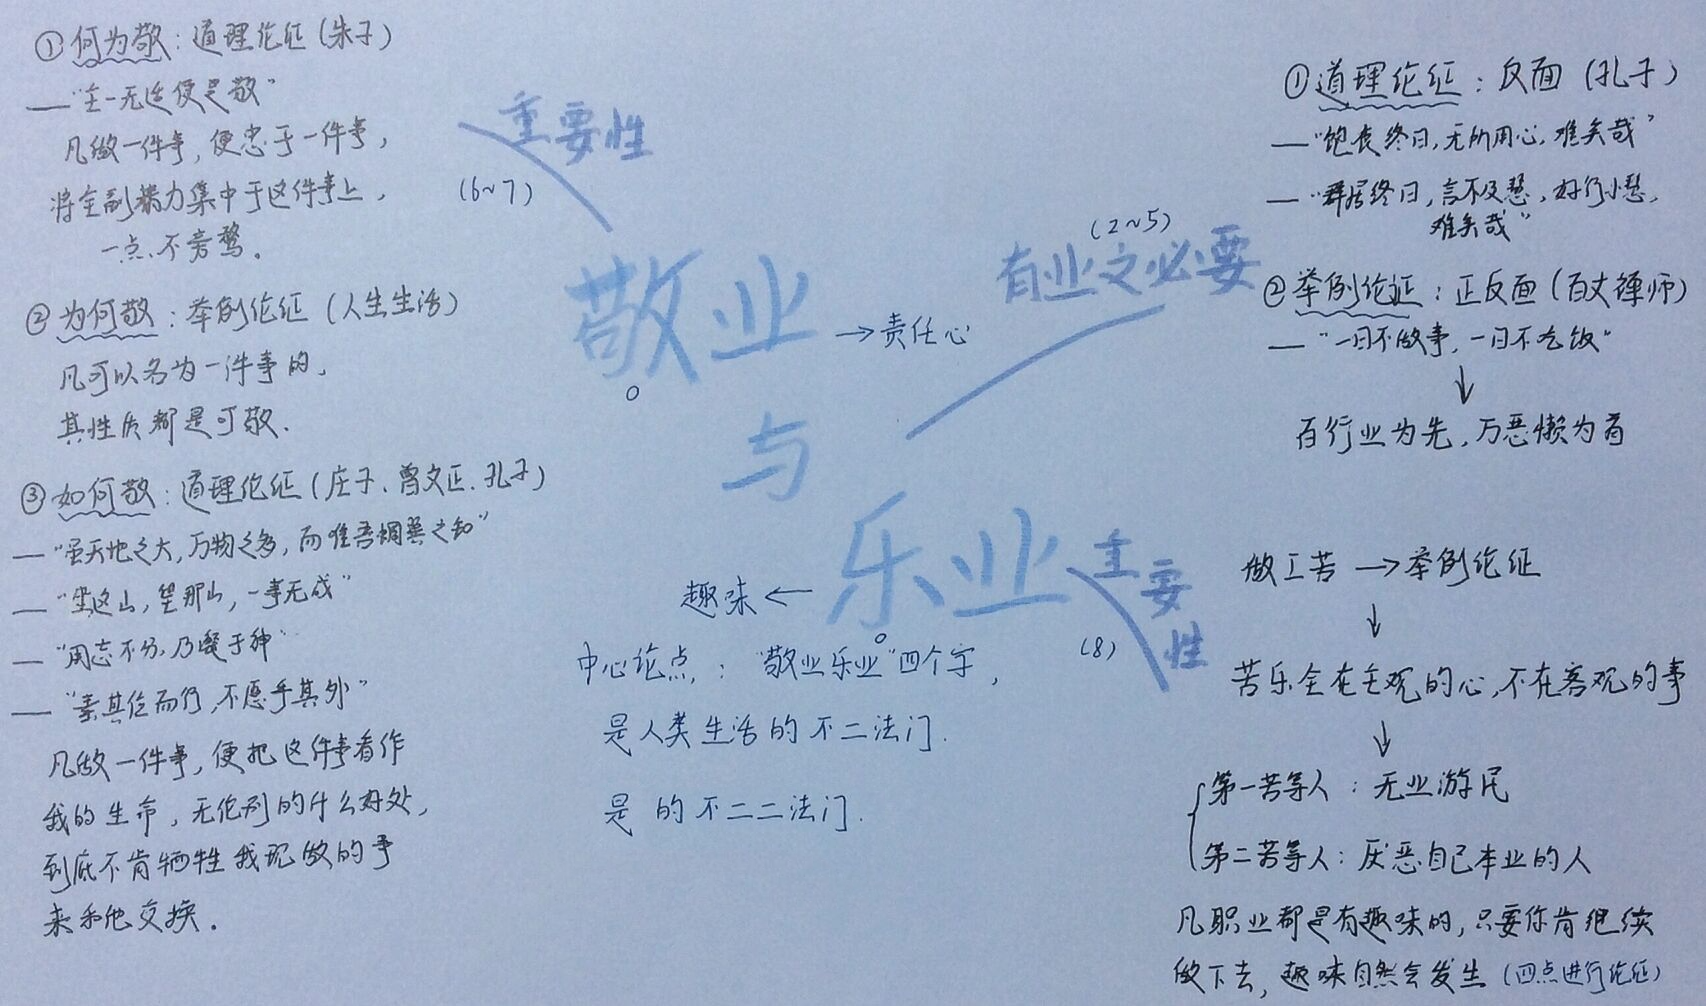 ①何为敬：道理论证（朱子）
——“主一无适便是敬”
凡做一件事，便忠于一件事，
将全副暴力集中于这件事上，
一点不旁骛。
②为何敬：举例论证（人生生活）
凡可以名为一件事的，
其性质都是可敬．
③如何敬：道理论证（庄子、曾文正、孔子）
——“虽天地之大，万物之多，而唯吾蜩翼之知”
——“坐这山，望那山，一事无成”
——“用志不分，乃凝于神”
——“素其位而行，不愿乎其外”
凡做一件事，便把这件事看作
我的生命，无伦别的什么好处，
到底不肯牺牲我现做的事
来和他交换．
重要性
(6~7)
敬业
→责任心
与
乐业
趣味←
重要性
(8)
(2~5)
有业之必要
中心论点：“敬业乐业”四个字，
是人类生活的不二法门．
是 的不二二法门．
①道理论证：反面（孔子）
——“饱食终日，无所用心，难矣哉”
——“群居终日，言不及慧，好行小慧，
难矣哉”
②举例论证：正反面（百丈禅师）
——“一日不做事，一日不吃饭”
↓
百行业为先，万恶懒为首
做工苦→举例论证
↓
苦乐全在主观的心，不在客观的事
↓
第一苦等人：无业游民
第二苦等人：厌恶自己本业的人
凡职业都是有趣味的，只要你肯继续
做下去，趣味自然会发生（四点进行论证）